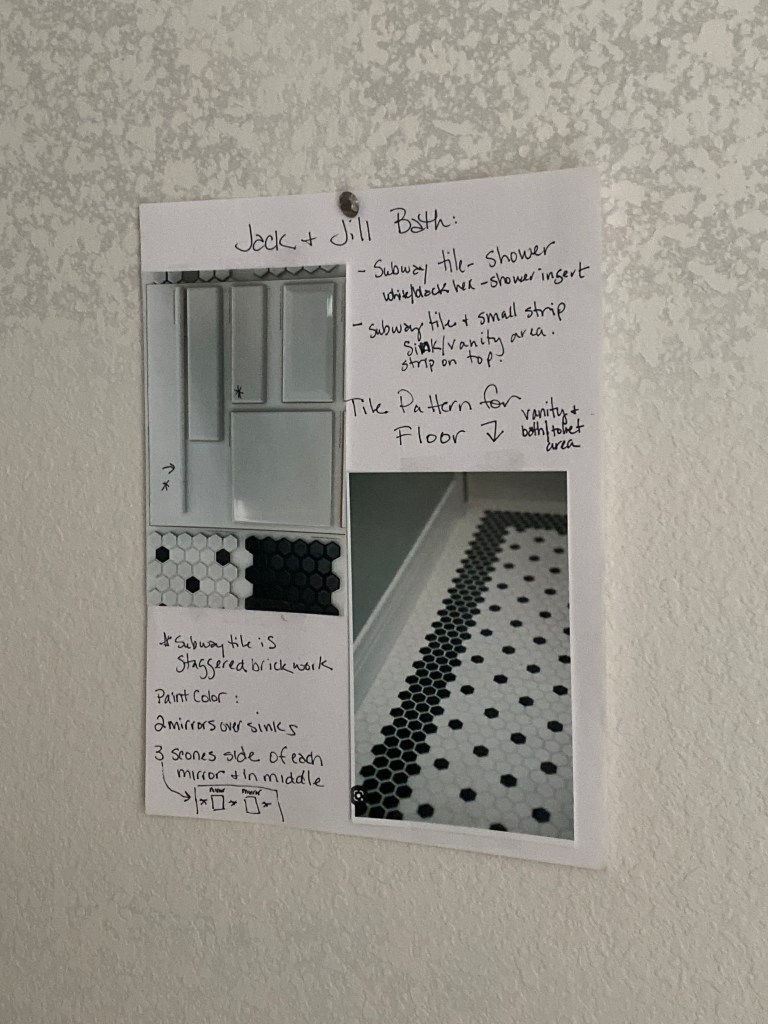 Jack + Jill Bath:
- Subway tile - shower
white/black hex - shower insert
- Subway tile + small strip
Sink/vanity area.
strip on top.
Tile Pattern for
Floor ↓
vanity +
bath/toilet
area
*
→
*
* Subway tile is
Staggered brick work
Paint Color :
2 mirrors over sinks
3 scones side of each
mirror + in middle
mirror mirror
x x x